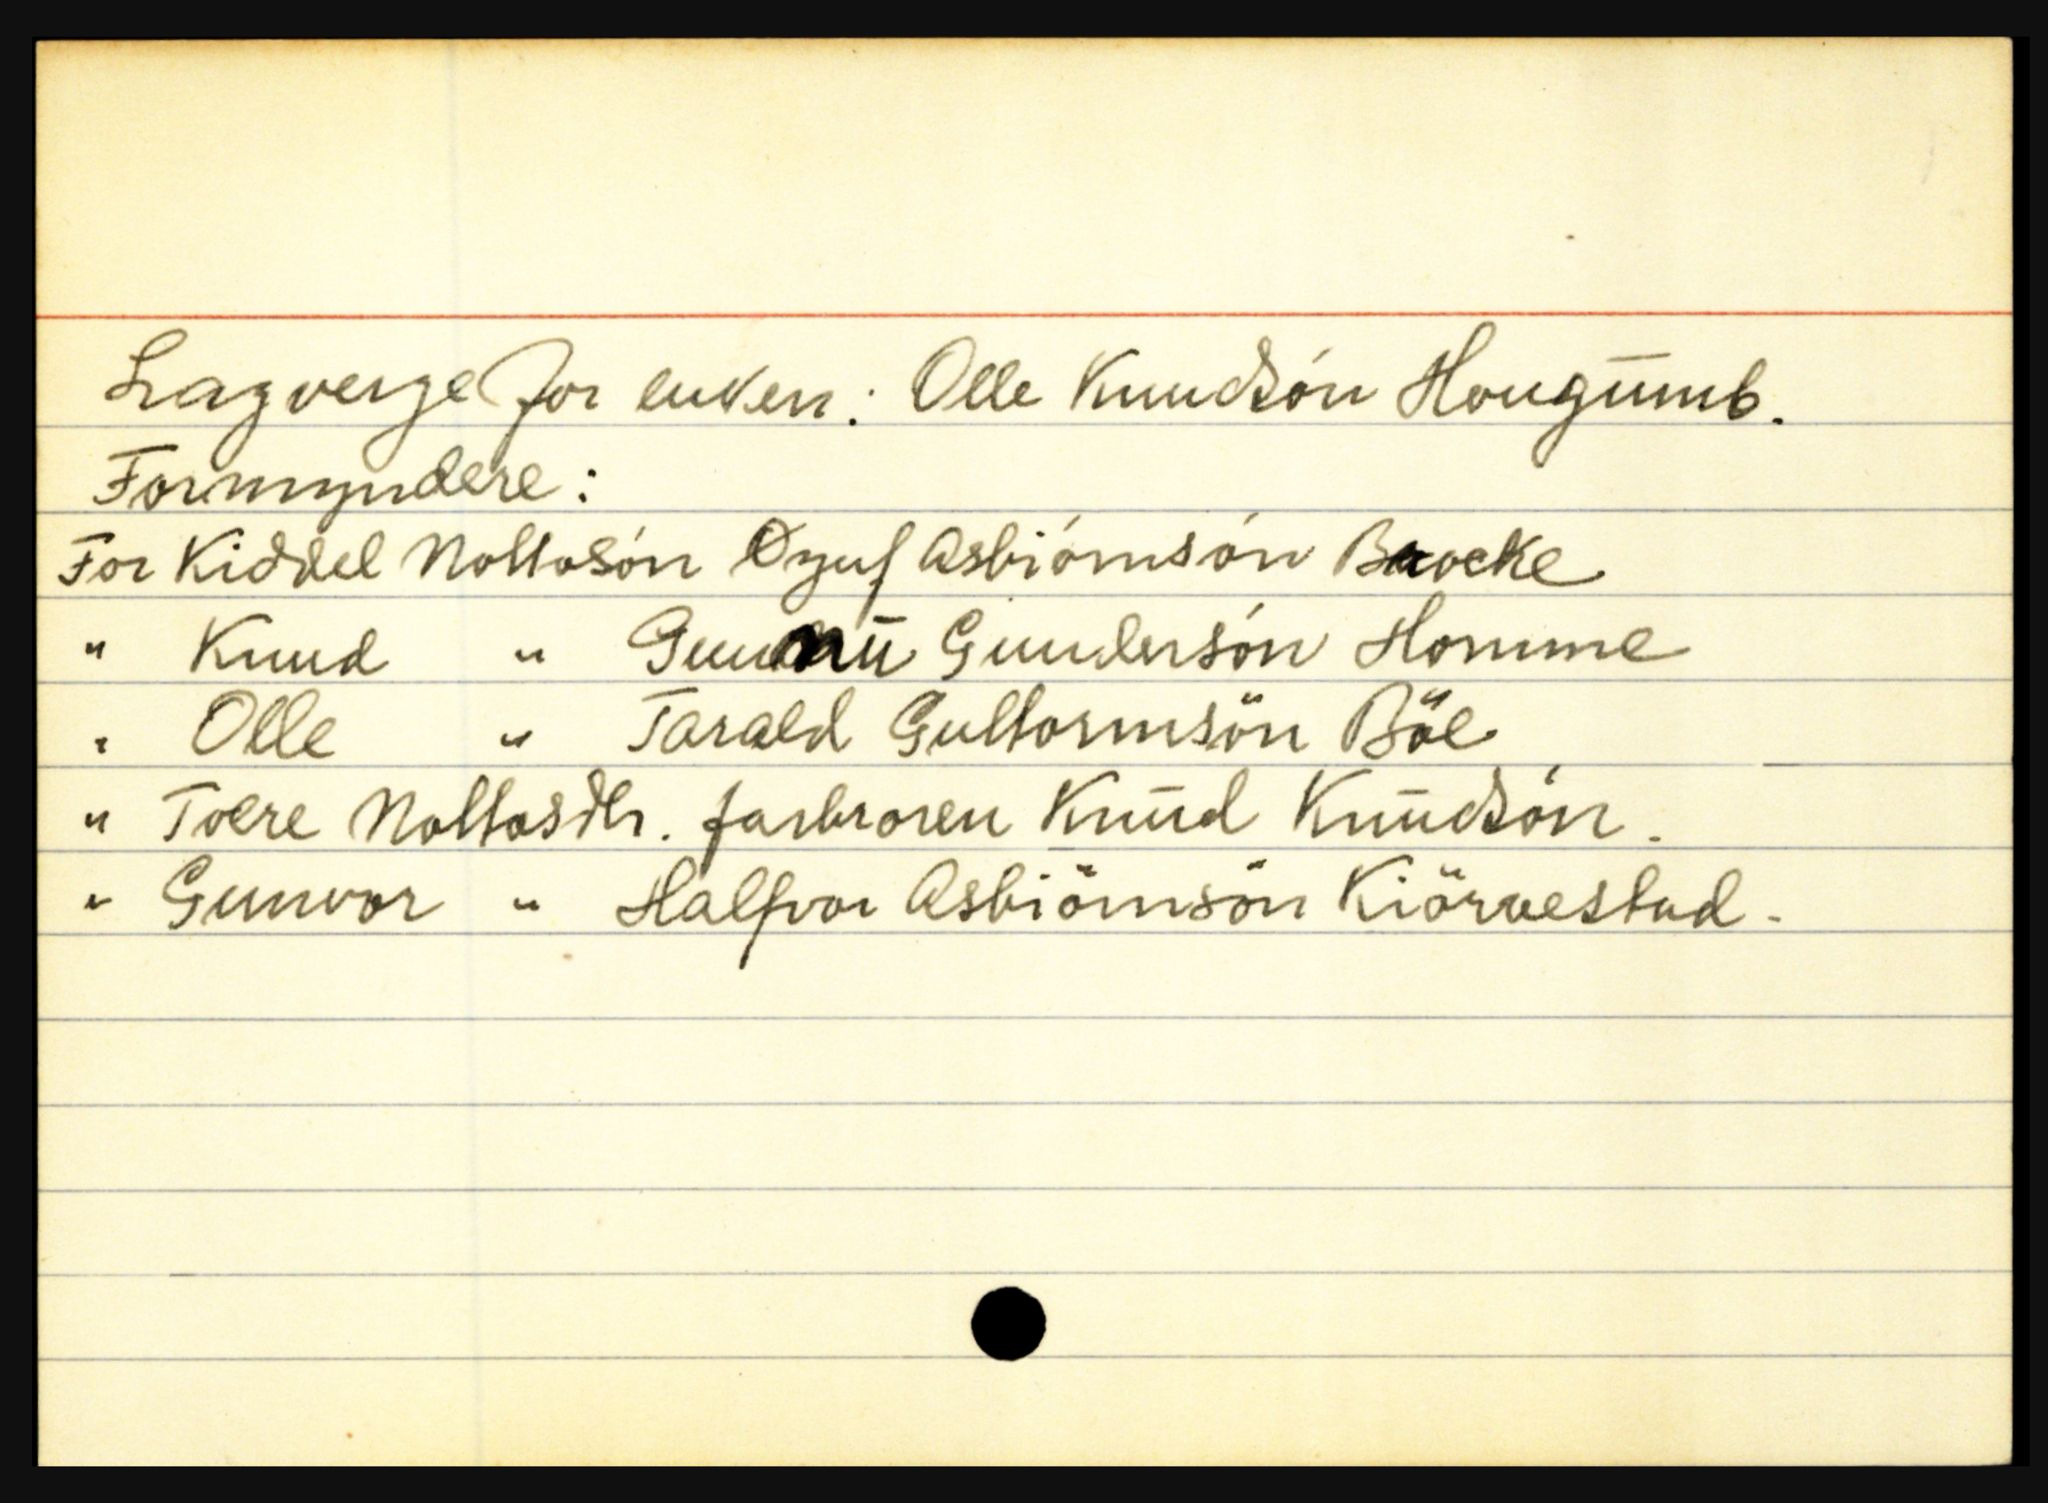 Lagverge for enken: Olle Knudsón Hougumb.
Formyndere:
For Kiddel Noltosón Ozuf Asbiörnsón Brocke
" Knud " Gunnu Gundersón Homme
" Olle " Tarald Guttormsön Böe
" Toere Noltosdtr. farbroren Knud Knudsón.
" Gunvor " Halfvor Asbiörnsön Kiörvestad.